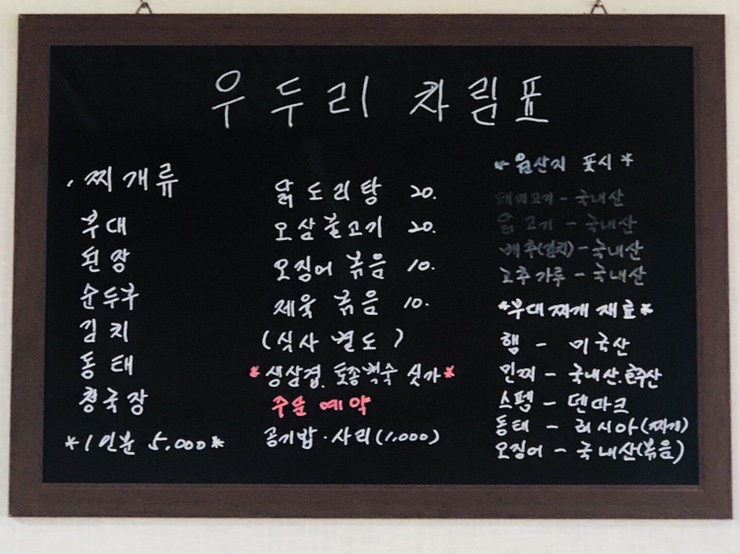 우두리 차림표
· 찌개류
부대
된장
순두부
김치
동태
청국장
*1인분 5,000*
닭도리탕 20.
오삼불고기 20.
오징어 볶음 10.
제육 볶음 10.
(식사 별도)
*생삼겹, 토종백숙 싯가*
주문 예약
공기밥 · 사리 (1,000)
* 원산지 표시 *
돼지고기 - 국내산
닭고기 - 국내산
배추(김치) - 국내산
고추가루 - 국내산
*부대찌개 재료*
햄 - 미국산
민찌 - 국내산, 호주산
스펨 - 덴마크
동태 - 러시아(찌개)
오징어 - 국내산(볶음)